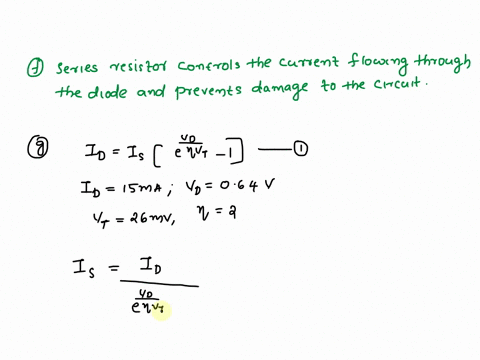 (f) Series resistor controls the current flowing through
the diode and prevents damage to the circuit.
(g) I_D = I_S [ e^{V_D/ηV_T} - 1 ] —— (1)
I_D = 15mA ; V_D = 0.64 V
V_T = 26mV, η = 2
I_S = I_D / e^{V_D/ηV_T}